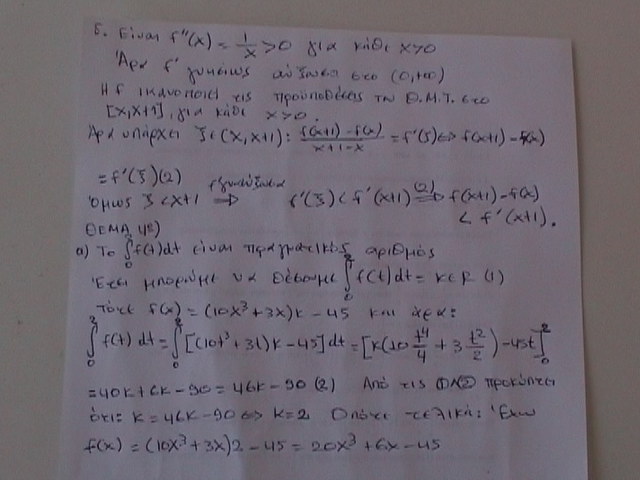 δ. Είναι f''(x) = 1/x > 0 για κάθε x>0
Άρα f' γνησίως αύξουσα στο (0,+∞)
Η f ικανοποιεί τις προϋποθέσεις του Θ.Μ.Τ. στο
[x,x+1], για κάθε x>0.
Άρα υπάρχει ξε(x,x+1): f(x+1)-f(x)/x+1-x = f'(ξ) ⇔ f(x+1)-f(x)
= f'(ξ) (2)
Όμως ξ<x+1 ⇒ f'(ξ) < f'(x+1) (2)⇒ f(x+1)-f(x)
< f'(x+1).
ΘΕΜΑ 4ο)
α) Το ∫₀² f(t)dt είναι πραγματικός αριθμός
Έτσι μπορούμε να θέσουμε ∫₀² f(t)dt = κ∈R (1)
Τότε f(x) = (10x³+3x)κ - 45 και άρα:
∫₀² f(t) dt = ∫₀² [(10t³+3t)κ-45]dt = [κ(10 t⁴/4 + 3 t²/2) - 45t]₀²
= 40κ+6κ-90 = 46κ-90 (2) Από τις (1),(2) προκύπτει
ότι: κ=46κ-90 ⇔ κ=2 Οπότε τελικά: Έχω
f(x) = (10x³+3x)2 - 45 = 20x³+6x-45